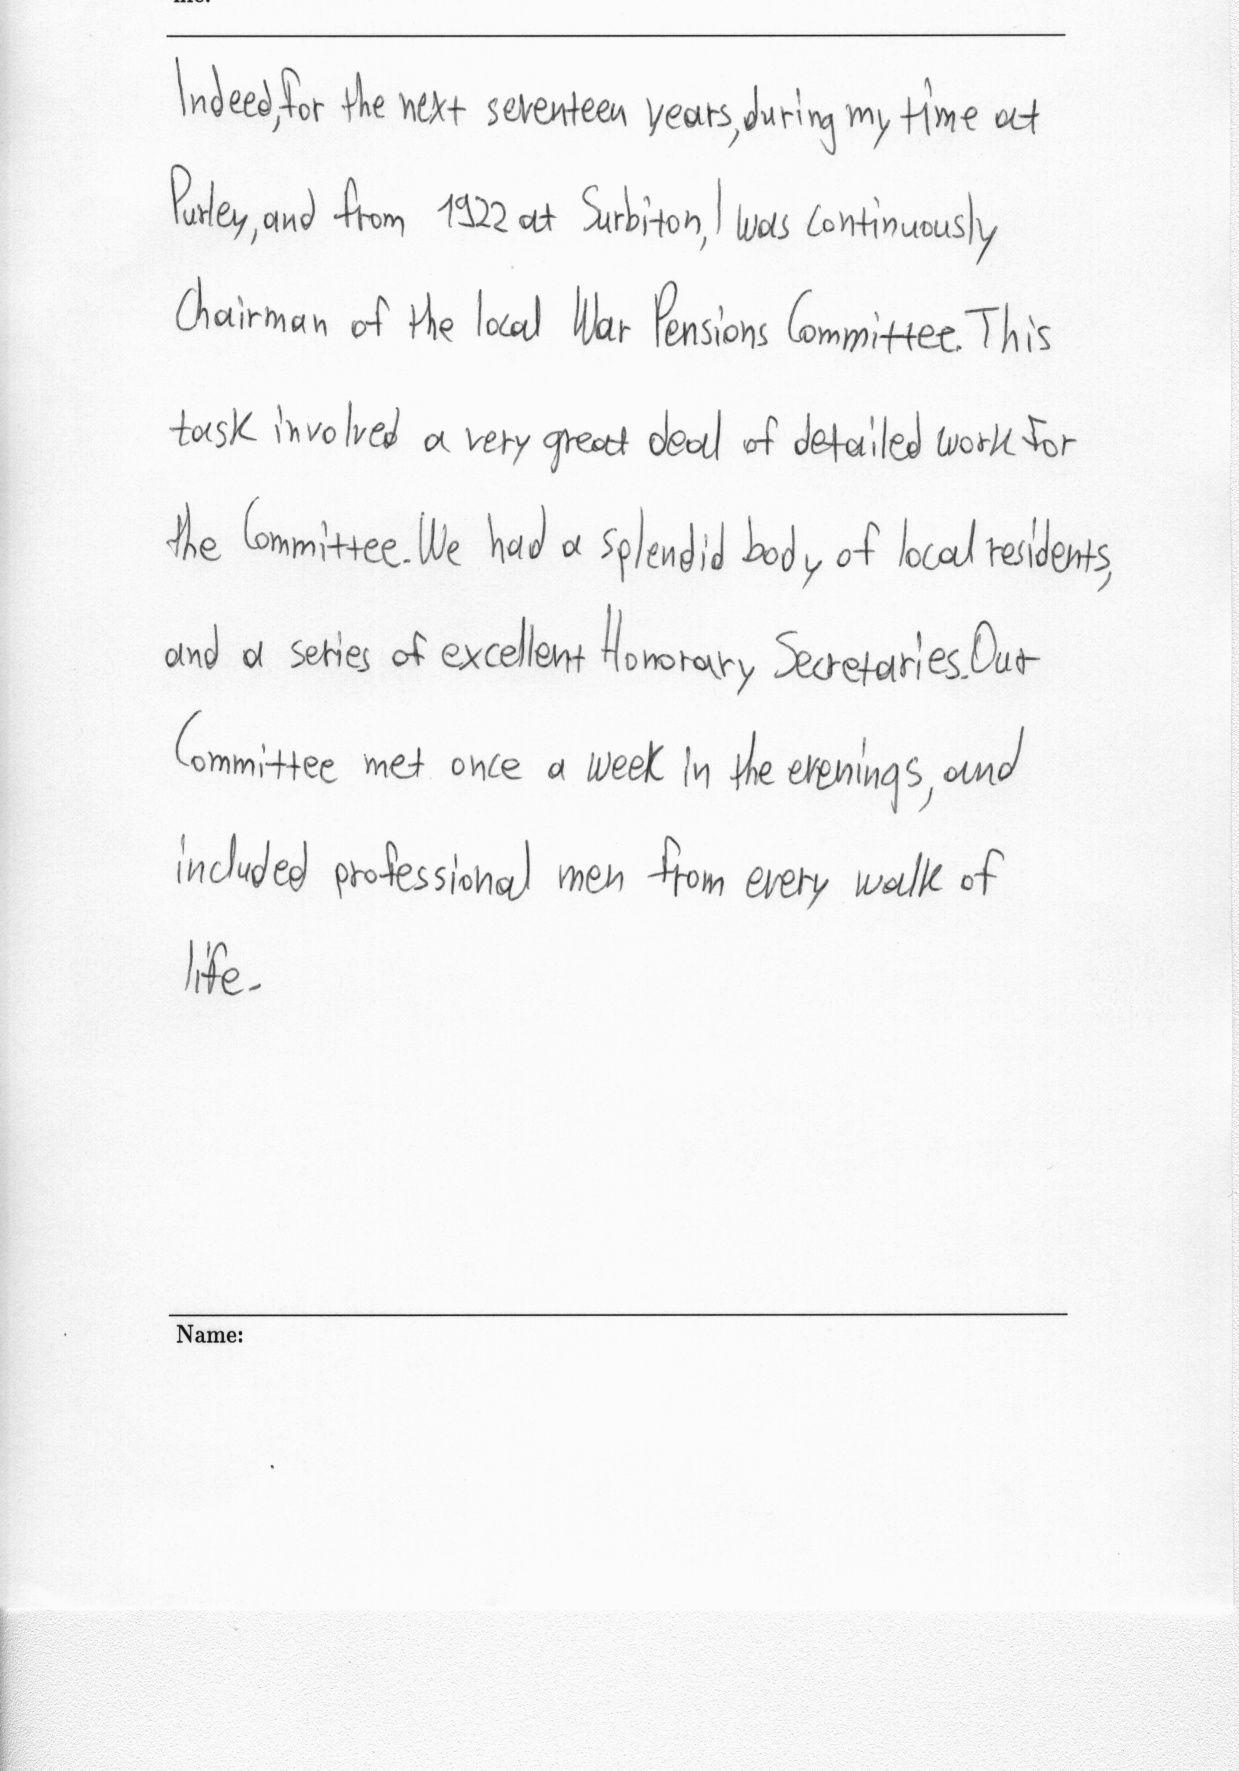 Indeed, for the next seventeen years, during my time at
Purley, and from 1922 at Surbiton, I was continuously
Chairman of the local War Pensions Committee. This
task involved a very great deal of detailed work for
the Committee. We had a splendid body of local residents,
and a series of excellent Honorary Secretaries. Our
Committee met once a week in the evenings, and
included professional men from every walk of
life.
Name: